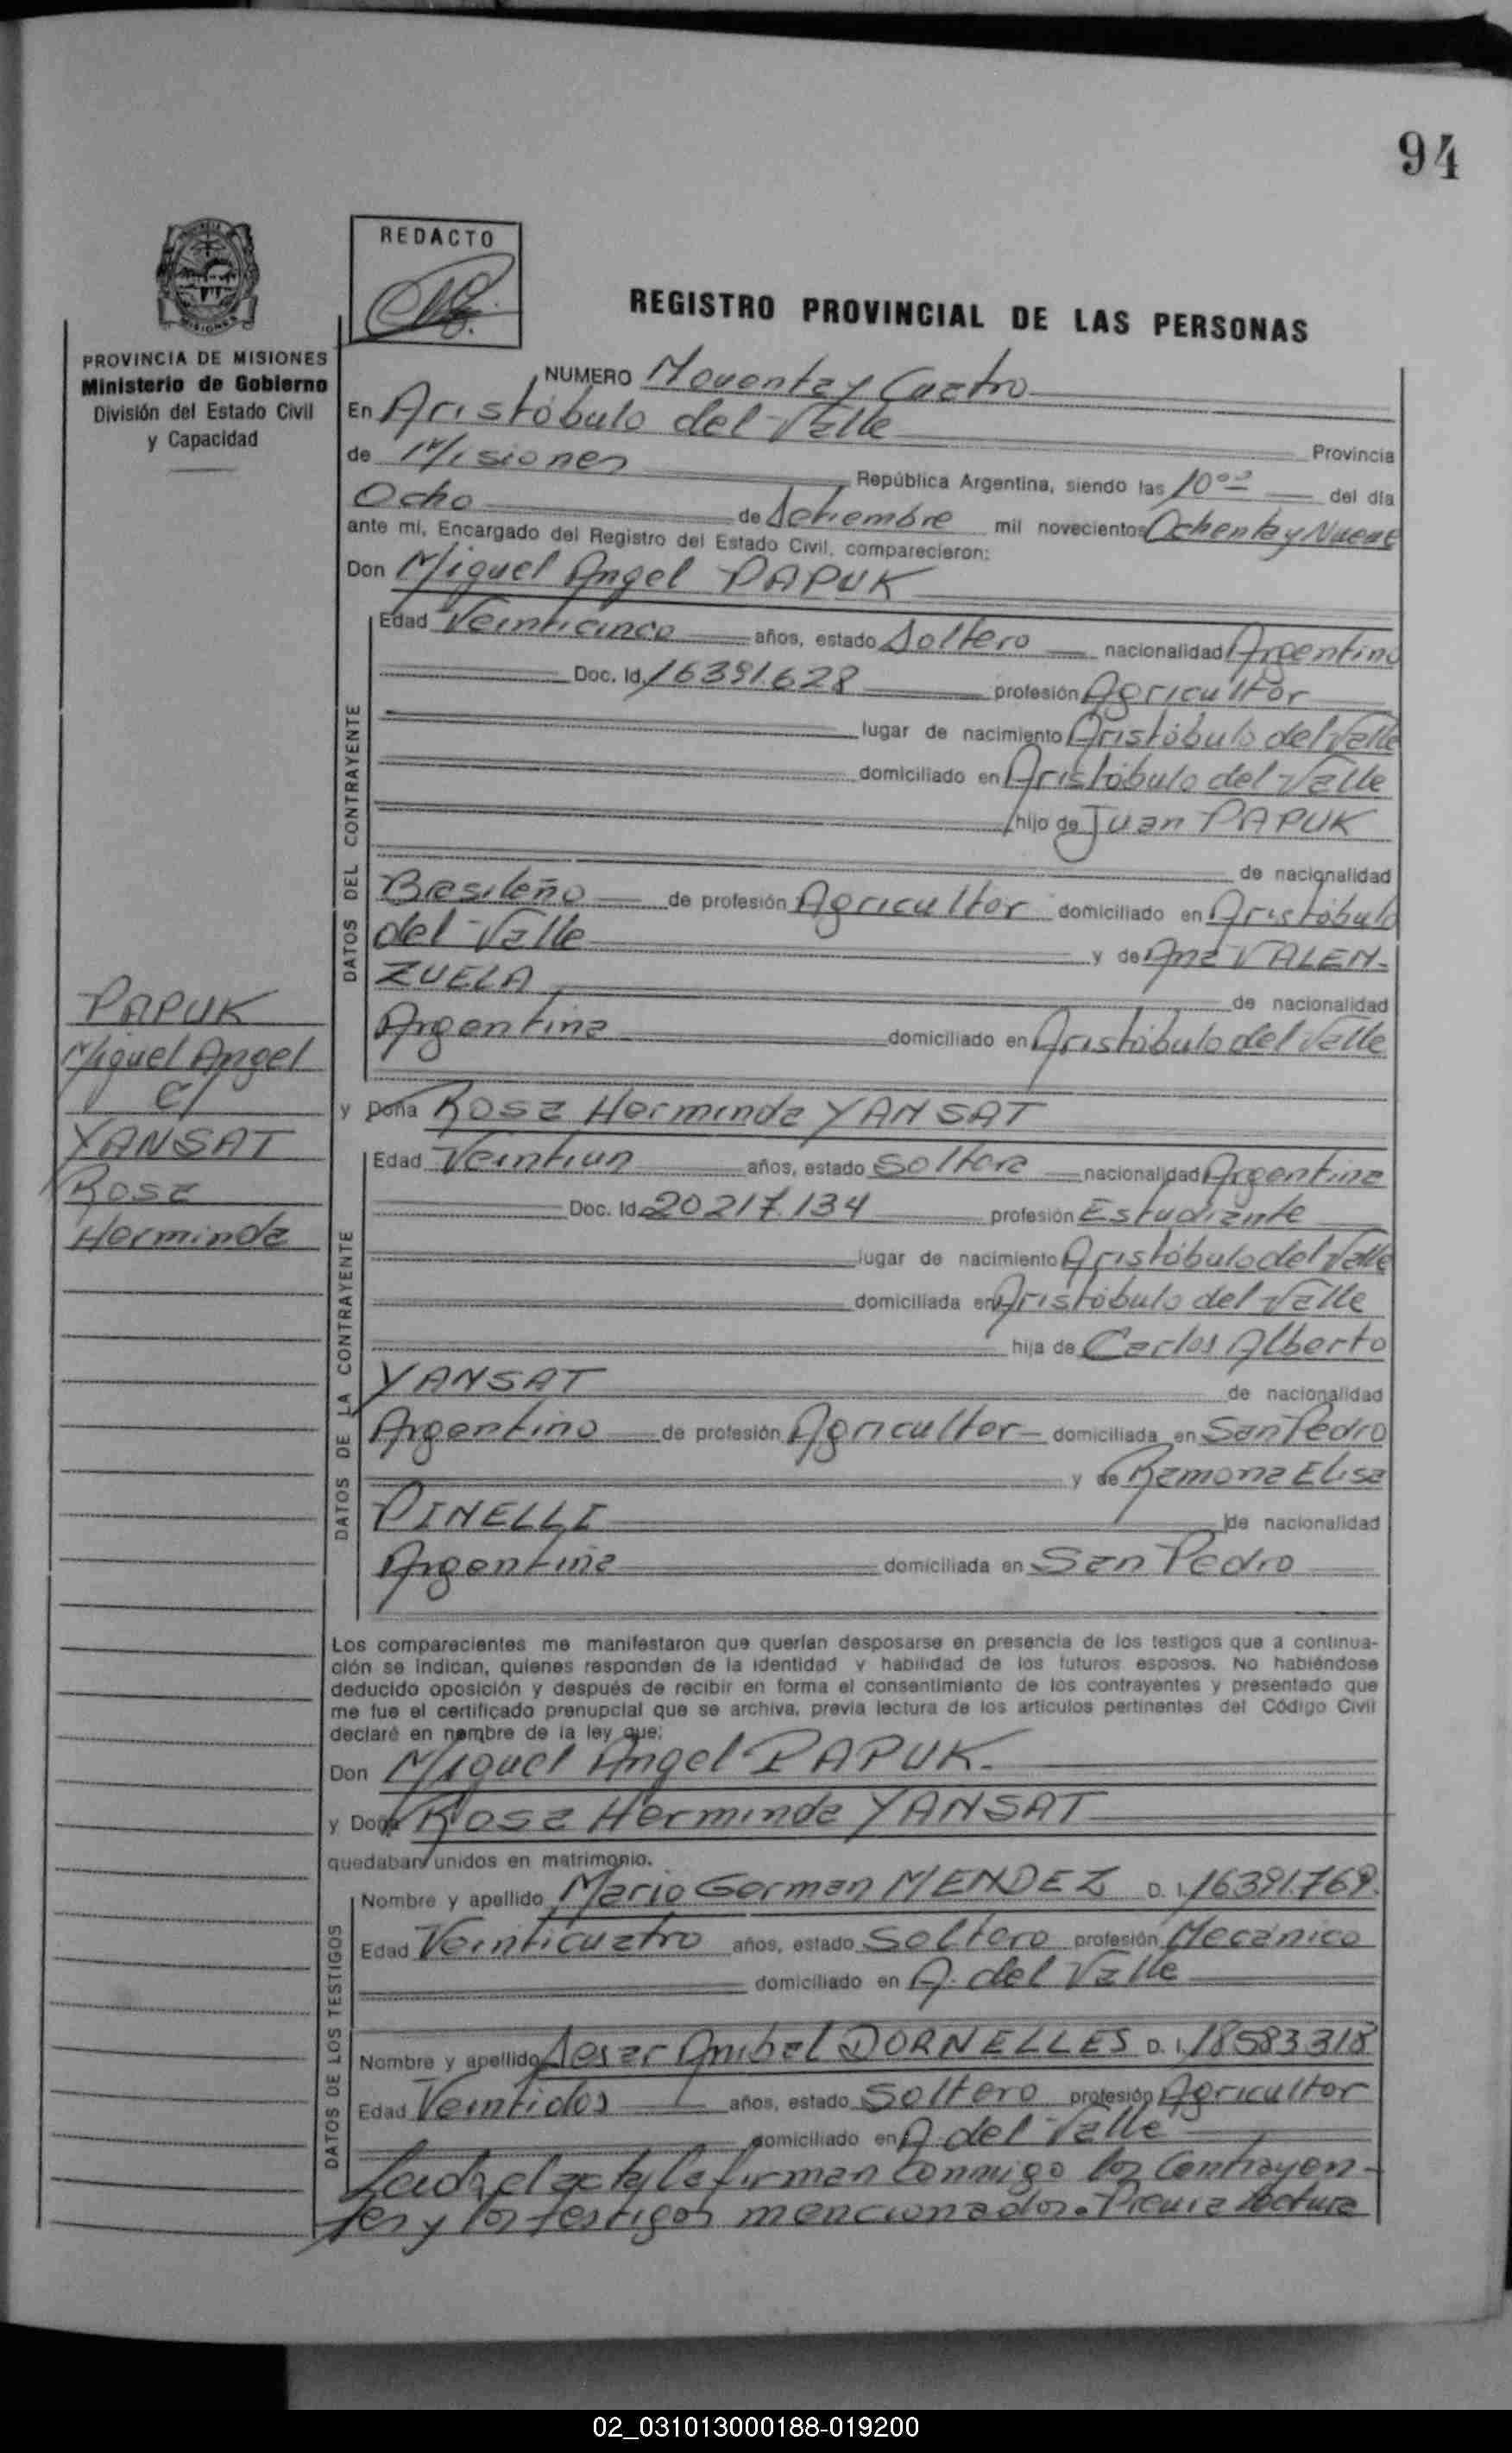 94
REDACTO
REGISTRO PROVINCIAL DE LAS PERSONAS
MISIONES
PROVINCIA DE MISIONES
Ministerio de Gobierno
División del Estado Civil
y Capacidad
NUMERO Noventa y Cuatro
En Aristóbulo del Valle Provincia
de Misiones República Argentina, siendo las 10°° del día
Ocho de Setiembre mil novecientos Ochenta y Nueve
ante mí, Encargado del Registro del Estado Civil, comparecieron:
Don Miguel Angel PAPUK
DATOS DEL CONTRAYENTE
Edad Veinticinco años, estado Soltero nacionalidad Argentino
Doc. Id. 16391.628 profesión Agricultor
lugar de nacimiento Aristóbulo del Valle
domiciliado en Aristóbulo del Valle
hijo de Juan PAPUK
de nacionalidad
Brasileño de profesión Agricultor domiciliado en Aristóbulo
del Valle y de Ana VALEN-
ZUELA, de nacionalidad
Argentina domiciliado en Aristóbulo del Valle
PAPUK
Miguel Angel
C/
YANSAT
Rosa
Herminda
y Doña Rosa Herminda YANSAT
DATOS DE LA CONTRAYENTE
Edad Veintiun años, estado Soltera nacionalidad Argentina
Doc. Id. 20217.134 profesión Estudiante
lugar de nacimiento Aristóbulo del Valle
domiciliada en Aristóbulo del Valle
hija de Carlos Alberto
YANSAT de nacionalidad
Argentino de profesión Agricultor domiciliada en San Pedro
y de Ramona Elisa
PINELLI de nacionalidad
Argentina domiciliada en San Pedro
Los comparecientes me manifestaron que querían desposarse en presencia de los testigos que a continua-
ción se indican, quienes responden de la identidad y habilidad de los futuros esposos. No habiéndose
deducido oposición y después de recibir en forma el consentimiento de los contrayentes y presentado que
me fue el certificado prenupcial que se archiva, previa lectura de los artículos pertinentes del Código Civil
declaré en nombre de la ley que:
Don Miguel Angel PAPUK.
y Doña Rosa Herminda YANSAT
quedaban unidos en matrimonio.
DATOS DE LOS TESTIGOS
Nombre y apellido Mario German MENDEZ D. I. 16391.769.
Edad Veinticuatro años, estado Soltero profesión Mecánico
domiciliado en A. del Valle
Nombre y apellido Anibal DORNELLES D. I. 18583318
Edad Veintidos años, estado Soltero profesión Agricultor
domiciliado en A. del Valle
el acta la firman conmigo los Contrayen-
tes y los testigos mencionados. Previa lectura
02_031013000188-019200